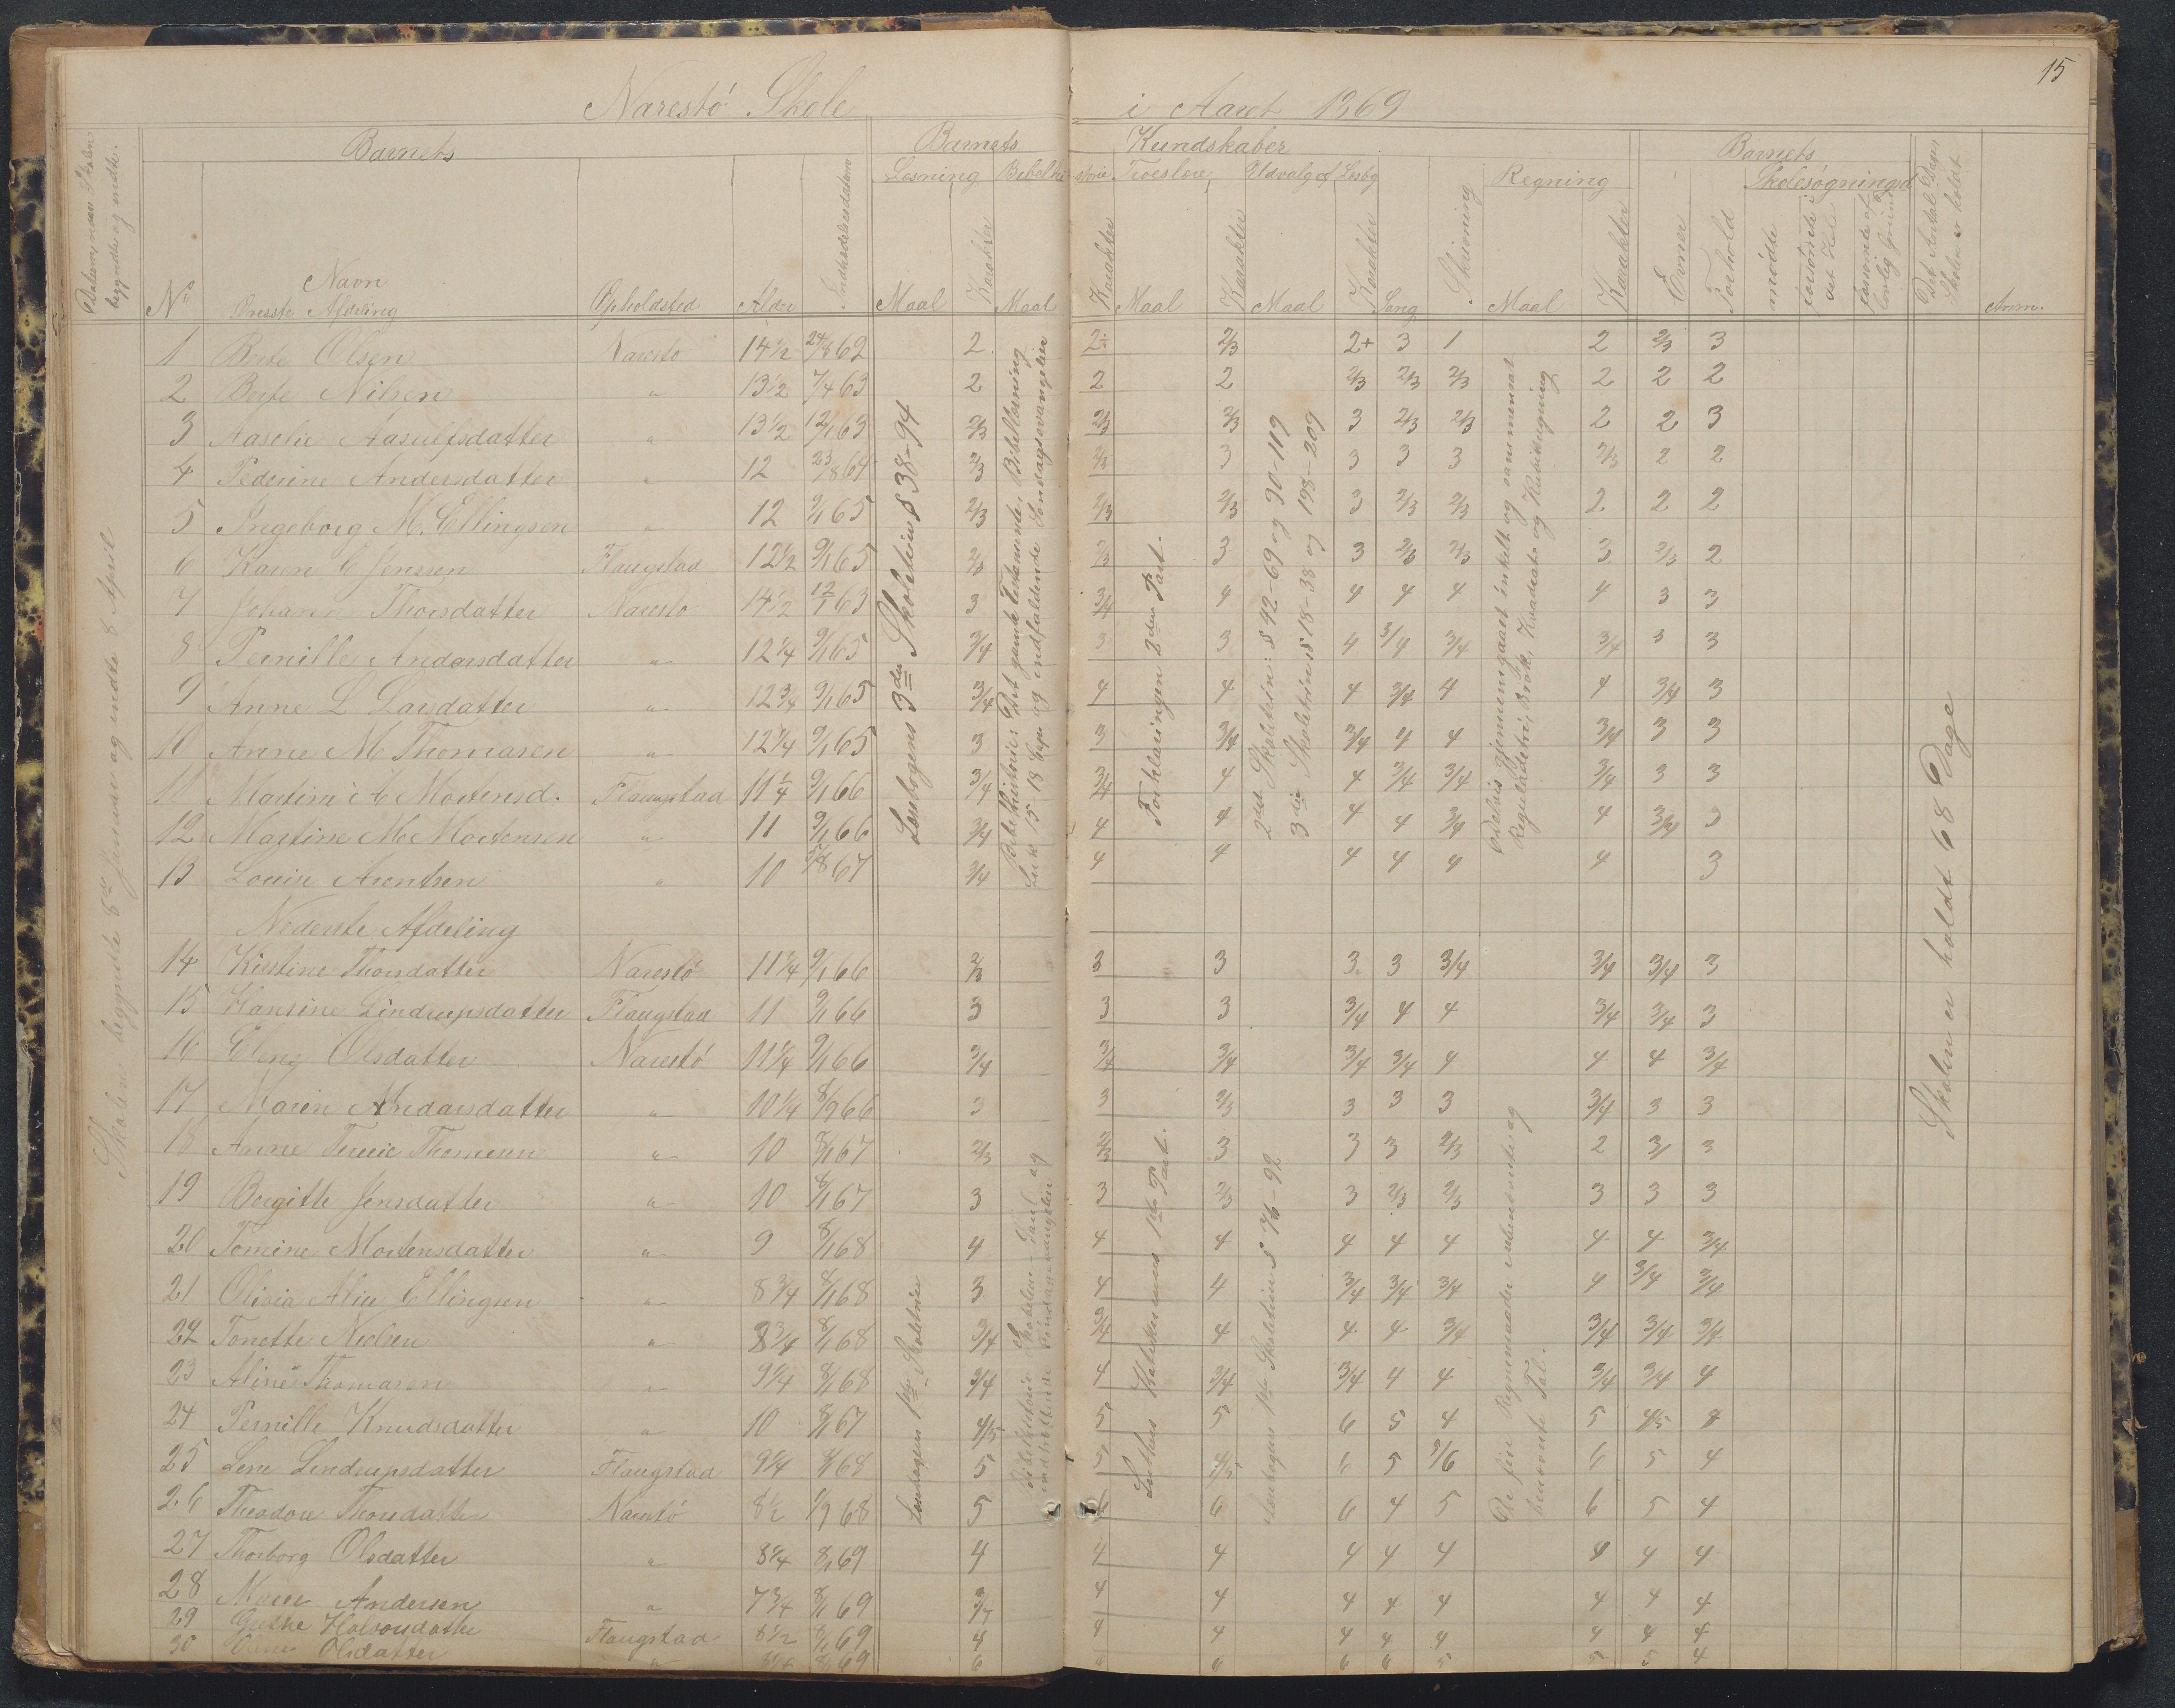 15
Narestö Skole i Aaret 1869
Barnets Barnets Kundskaber Barnets
Læsning Bibelhistorie Troeslære Udvalg af Læsbg Regning Skolesøgningsd
Datum, naar Skolen begyndte og endte.
No Navn Opholdsted Alder Indtrædelsesdatum Maal Karakter Maal Karakter Maal Karakter Maal Karakter Sang Skrivning Maal Karakter Evner Forhold mødte forsømte i det Hele forsømte af lovlig Grund Det Antal Dage, Skolen er holdt Anm.
Øverste Afdeling
1 Berte Olsen Narestö 14 1/2 24/8 62 2 2÷ 2/3 2+ 3 1 2 2/3 3
2 Berte Nilsen " 13 1/2 7/4 63 2 2 2 2/3 2/3 2/3 2 2 2
3 Aaselie Aasulfsdatter " 13 1/2 12/1 63 2/3 2/3 2/3 3 2/3 2/3 2 2 3
4 Pederine Andersdatter " 12 23/8 64 2/3 2/3 3 3 3 3 2/3 2 2
5 Ingeborg M. Ellingsen " 12 9/1 65 2/3 2/3 2/3 3 2/3 2/3 2 2 2
6 Karen C Jensen Flaugstad 12 1/2 9/1 65 2/3 2/3 3 3 2/3 2/3 3 2/3 2
7 Johanne Thorsdatter Narestö 14 1/2 12/1 63 3 3/4 4 4 4 4 4 3 3
8 Pernille Andersdatter " 12 1/4 9/1 65 3/4 3 3 4 3/4 3/4 3/4 3 3
9 Anne L Larsdatter " 12 3/4 9/1 65 3/4 4 4 4 3/4 4 4 3/4 3
10 Anne M Thomasen " 12 1/4 9/1 65 3 3 3/4 3/4 4 4 3/4 3 3
11 Martine A Mortensd. Flaugstad 11 1/4 9/1 66 3/4 3/4 4 4 3/4 3/4 3/4 3 3
12 Martine M Mortensen " 11 9/1 66 3/4 4 4 4 4 3/4 4 3/4 3
13 Louise Arentsen " 10 5/8 67 3/4 4 4 4 4 4 4 3
Nederste Afdeling
14 Kirstine Thorsdatter Narestö 11 1/4 9/1 66 2/3 3 3 3 3 3/4 3/4 3/4 3
15 Hansine Lindrupsdatter Flaugstad 11 9/1 66 3 3 3 3/4 4 4 3/4 3/4 3
16 Eleny Olsdatter Narestö 11 1/4 9/1 66 3/4 3/4 3/4 3/4 3/4 4 4 4 3/4
17 Maren Andersdatter " 10 1/4 8/9 66 3 3 2/3 3 3 3 3/4 3 3
18 Anne Thomesen " 10 8/1 67 2/3 2/3 3 3 3 2/3 2 3 3
19 Bergitte Jensdatter " 10 8/1 67 3 3 2/3 3 2/3 2/3 3 3 3
20 Tomine Mortensdatter " 9 8/1 68 4 4 4 4 4 4 4 4 3/4
21 Olivia Alice Ellingsen " 8 3/4 8/1 68 3 4 4 3/4 3/4 3/4 4 3/4 3/4
22 Tonette Nielsen " 8 3/4 8/1 68 3/4 3/4 4 4 4 3/4 3/4 3/4 3/4
23 Aline Thomasen " 9 1/4 8/1 68 3/4 4 3/4 3/4 4 4 3/4 3/4 4
24 Pernille Knudsdatter " 10 8/1 67 4/5 5 5 6 5 4 5 4/5 4
25 Lene Lindrupsdatter Flaugstad 9 1/4 8/1 68 5 5 4/5 6 5 5/6 6 5 4
26 Theodore Thorsdatter Narestö 8 1/2 1/9 68 5 6 6 6 4 5 6 5 4
27 Thorborg Olsdatter " 8 1/4 8/1 69 4 4 4 4 4 4 4 4 4
28 Maren Andersen " 7 3/4 8/1 69 3/4 4 4 4 4 4 4 4 4
29 Halvorsdatter Flaugstad 8 1/2 8/1 69 4 4 4 4 4 4 4 4 4
30 Olsdatter " 8/1 69 6 6 6 6 5 5 5 4
Skolen begyndte 8de Januar og endte 8 April
Læsebogens 3die Skoletrin § 38-94
Bibelhistorie: Det gamle Testamente, Bibellæsning
Luk. 15, 18 Cap. og indfaldende Søndagsevangelier
Forklaringen 2den Part.
2det Skoletrin: § 42-69 og 90-119
3die Skoletrin § 18-38 og 198-209
Delvis gjennemgaaet enkelt og sammensat
Reguladetri, Brøk, Kvadrat- og Kubikregning
Læsebogens 1ste Skoletrin
Luthers Katekismus 1ste Part.
Læsebogens 1ste Skoletrin § 76-92
De fire Regnemaader i ubenævnte og
benævnte Tal.
Skolen er holdt 68 Dage